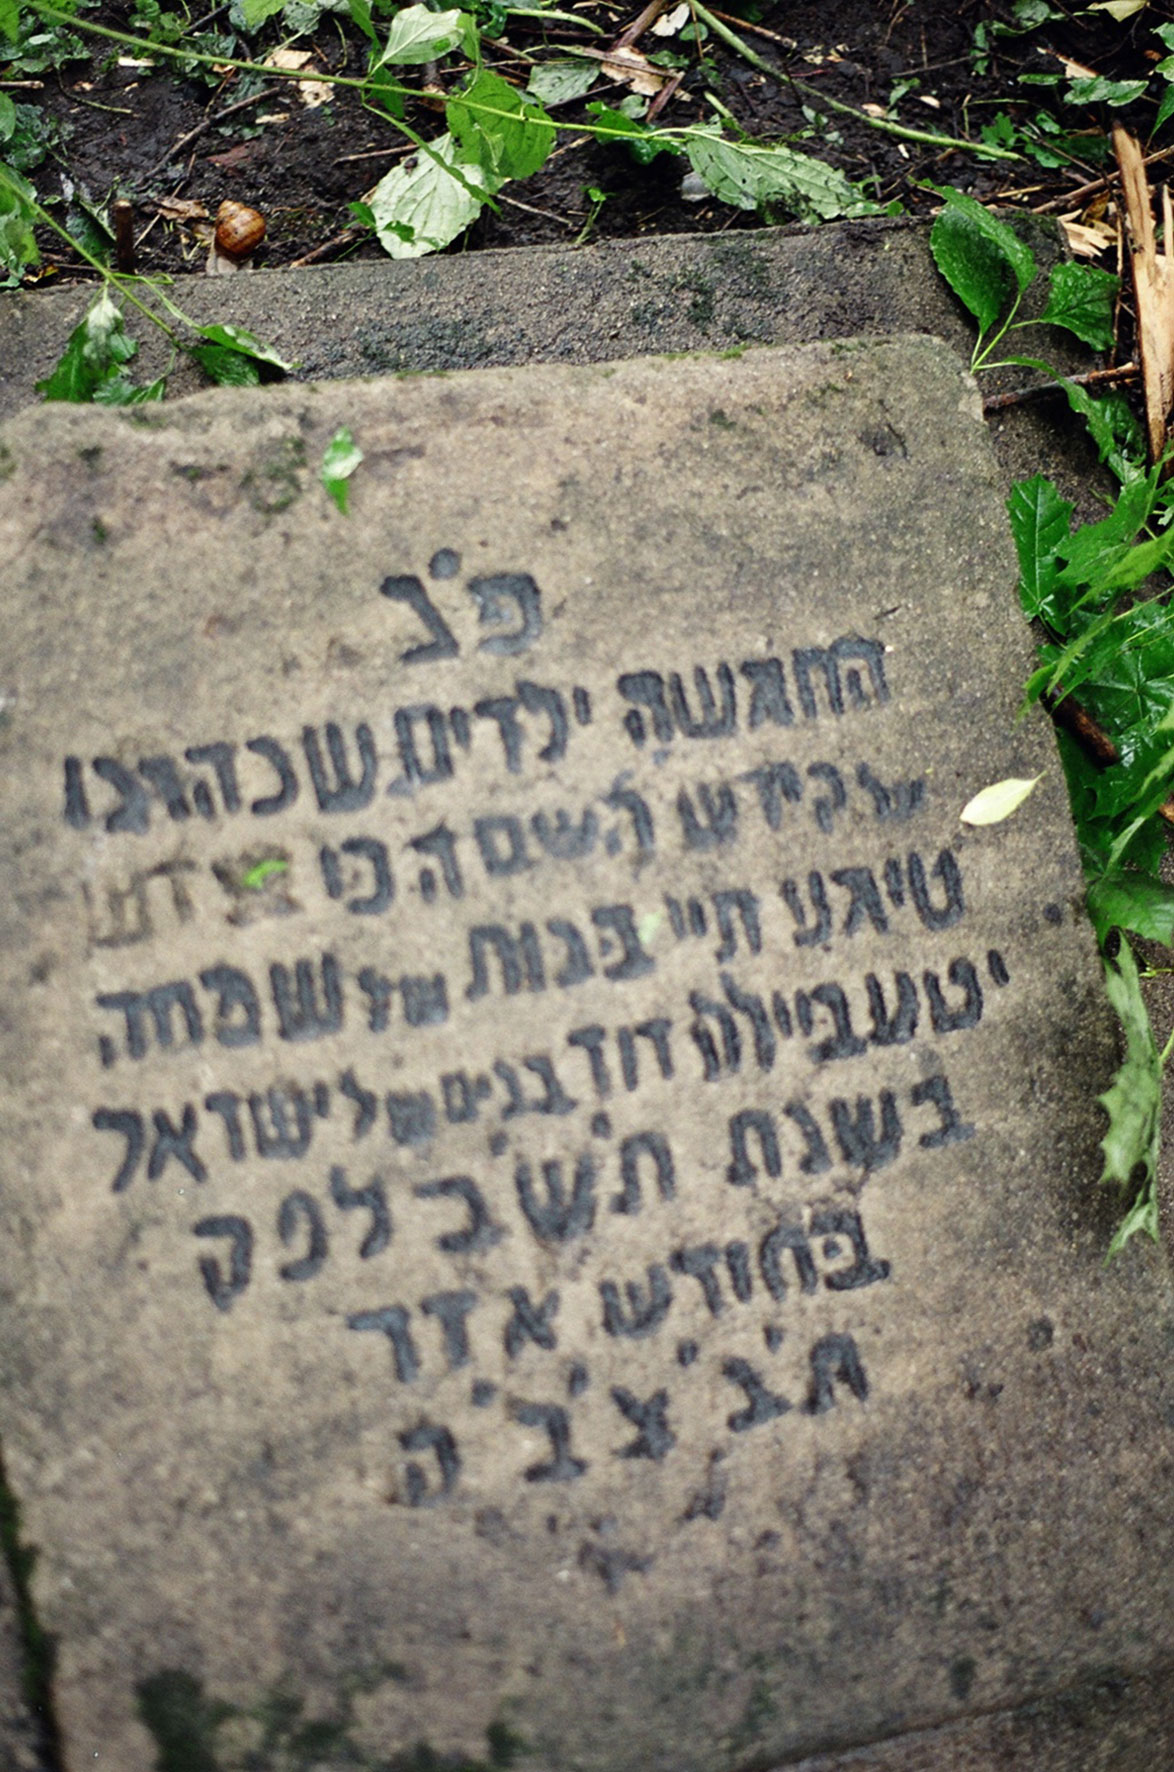 פ'נ
החמשה ילדים שנהרגו
על קידש השם
בנות של שמחה
יטע ביילה דוד בנים של ישראל
בשנת ת'ש'ב לפק
בחודש אדר
ת'נ'צ'ב'ה